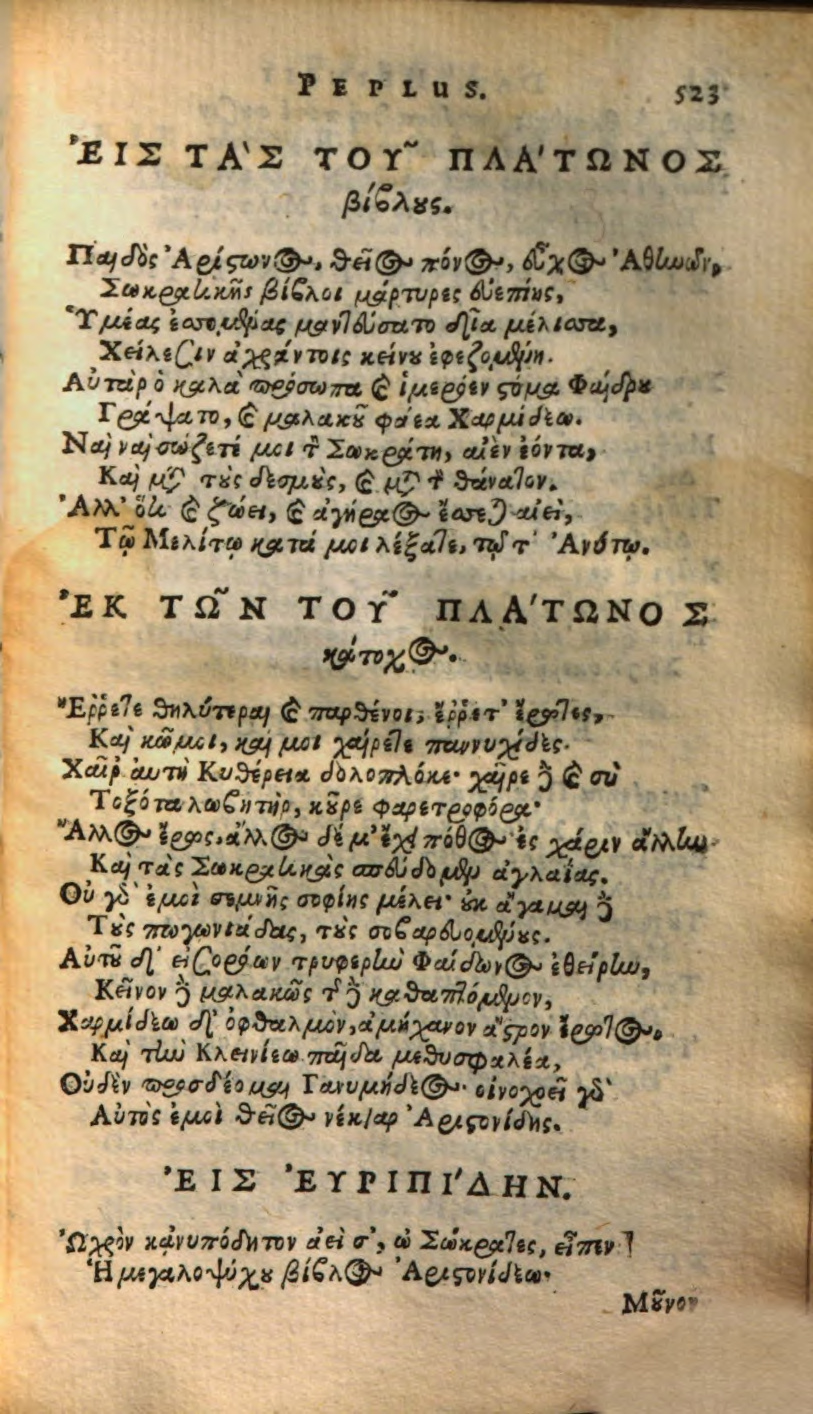 PEPLUS. 523
ἘΙΣ ΤΑ῍Σ ΤΟΥ͂ ΠΛΑ΄ΤΩΝΟΣ
βίβλους.
Παιδὸς Ἀρίστωνος, θεῖος πόνος, εὖχος Ἀθηνῶν,
Σωκρατικῆς βίβλοι μάρτυρες εὐεπίης,
Ὑμέας ἑσσομένας μαντεύσατο δῖα μέλισσα,
Χείλεσιν ἀχράντοις κείνου ἐφεζομένη.
Αὐτὰρ ὁ καλὰ πρόσωπα καὶ ἱμερόεν στόμα Φαίδρου
Γράψατο, καὶ μαλακοῦ φάεα Χαρμίδεω.
Ναὶ ναὶ σώζετέ μοι τὸν Σωκράτη, αἰὲν ἐόντα,
Καὶ μετὰ τοὺς δεσμοὺς, καὶ μετὰ τὸν θάνατον.
Ἀλλ' ὅτι καὶ ζώει, καὶ ἀγήραος ἔσσεται αἰεὶ,
Τῷ Μελίτῳ κατά μοι λέξατε, τῷ τ' Ἀνύτῳ.
ἘΚ ΤΩ͂Ν ΤΟΥ͂ ΠΛΑ΄ΤΩΝΟΣ
κάτοχος.
Ἔῤῥετε θηλύτεραι καὶ παρθένοι, ἔῤῥετ' ἔρωτες,
Καὶ κῶμοι, καί μοι χαίρετε παννυχίδες.
Χαῖρ' αὐτὴ Κυθέρεια δολοπλόκε· χαῖρε δὲ καὶ σὺ
Τοξότα λωβητὴρ, κοῦρε φαρετροφόρα·
Ἄλλος ἔρως, ἄλλος δέ μ' ἔχει πόθος ἐς χάριν ἄλλην
Καὶ τὰς Σωκρατικὰς σπεύδομεν ἀγλαΐας.
Οὐ γὰρ ἐμοὶ σεμνῆς σοφίης μέλει· οὐκ ἄγαμαι δὲ
Τοὺς πωγωνιάδας, τοὺς σοβαρευομένους.
Αὐτοῦ δ' εἰσορόων τρυφερὴν Φαίδωνος ἐθείρην,
Κεῖνον δὲ μαλακῶς τόνδε καθαπτόμενον,
Χαρμίδεω δ' ὀφθαλμὸν, ἀμήχανον ἄστρον ἔρωτος,
Καὶ τὴν Κλεινίεω παῖδα μεθυσφαλέα,
Οὐδὲν προσδέομαι Γανυμήδεος· οἰνοχοεῖ γὰρ
Αὐτὸς ἐμοὶ θεῖος νέκταρ Ἀριστονίδης.
ἘΙΣ ἘΥΡΙΠΙ΄ΔΗΝ.
Ὠχρὸν κἀνυπόδητον ἀεὶ σ', ὦ Σώκρατες, εἶπεν
Ἡ μεγαλοψύχου βίβλος Ἀριστονίδεω·
Μοῦνον